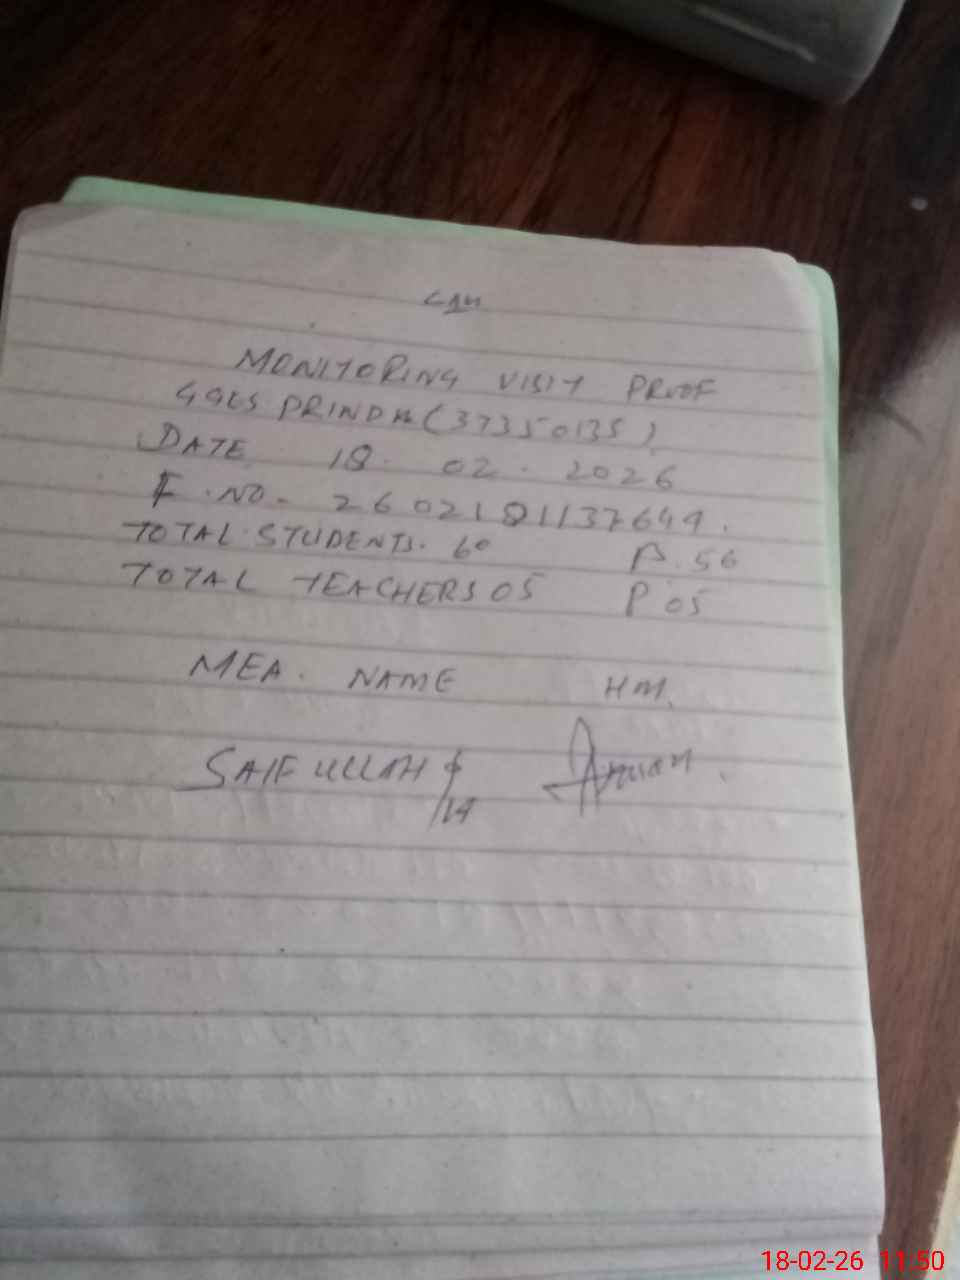 MONITORING VISIT PROOF
GGES PRINDH (37350135)
DATE 18. 02. 2026
F. NO. 2602181137644.
TOTAL STUDENTS. 60 P. 56
TOTAL TEACHERS 05 P 05
MEA. NAME HM.
SAIF ULLAH
18-02-26 11:50